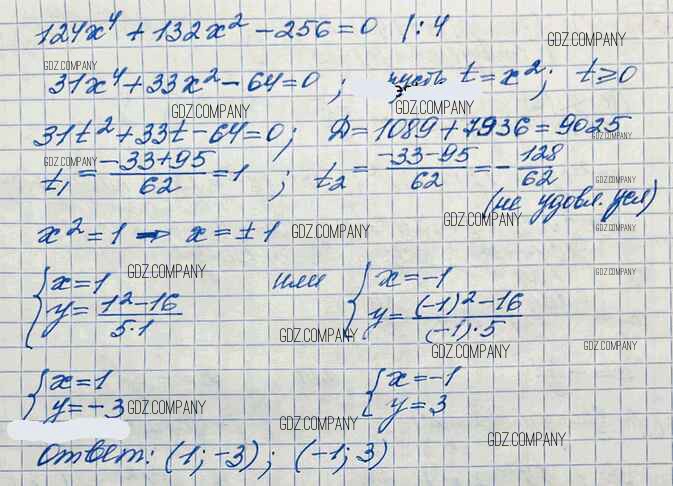 124x⁴ + 132x² - 256 = 0 |: 4
GDZ.COMPANY
GDZ.COMPANY
31x⁴ + 33x² - 64 = 0 ; пусть t = x²; t ≥ 0
GDZ.COMPANY GDZ.COMPANY
31t² + 33t - 64 = 0; D = 1089 + 7936 = 9025
GDZ.COMPANY
GDZ.COMPANY
t₁ = (-33+95)/62 = 1 ; t₂ = (-33-95)/62 = -128/62
GDZ.COMPANY
(не удовл. усл)
GDZ.COMPANY
x² = 1 ⇒ x = ±1 GDZ.COMPANY GDZ.COMPANY
GDZ.COMPANY GDZ.COMPANY
{ x = 1 или { x = -1
y = (1² - 16)/(5·1) y = ((-1)² - 16)/((-1)·5)
GDZ.COMPANY
GDZ.COMPANY GDZ.COMPANY
{ x = 1 { x = -1
y = -3 GDZ.COMPANY y = 3
GDZ.COMPANY GDZ.COMPANY
Ответ: (1; -3); (-1; 3)